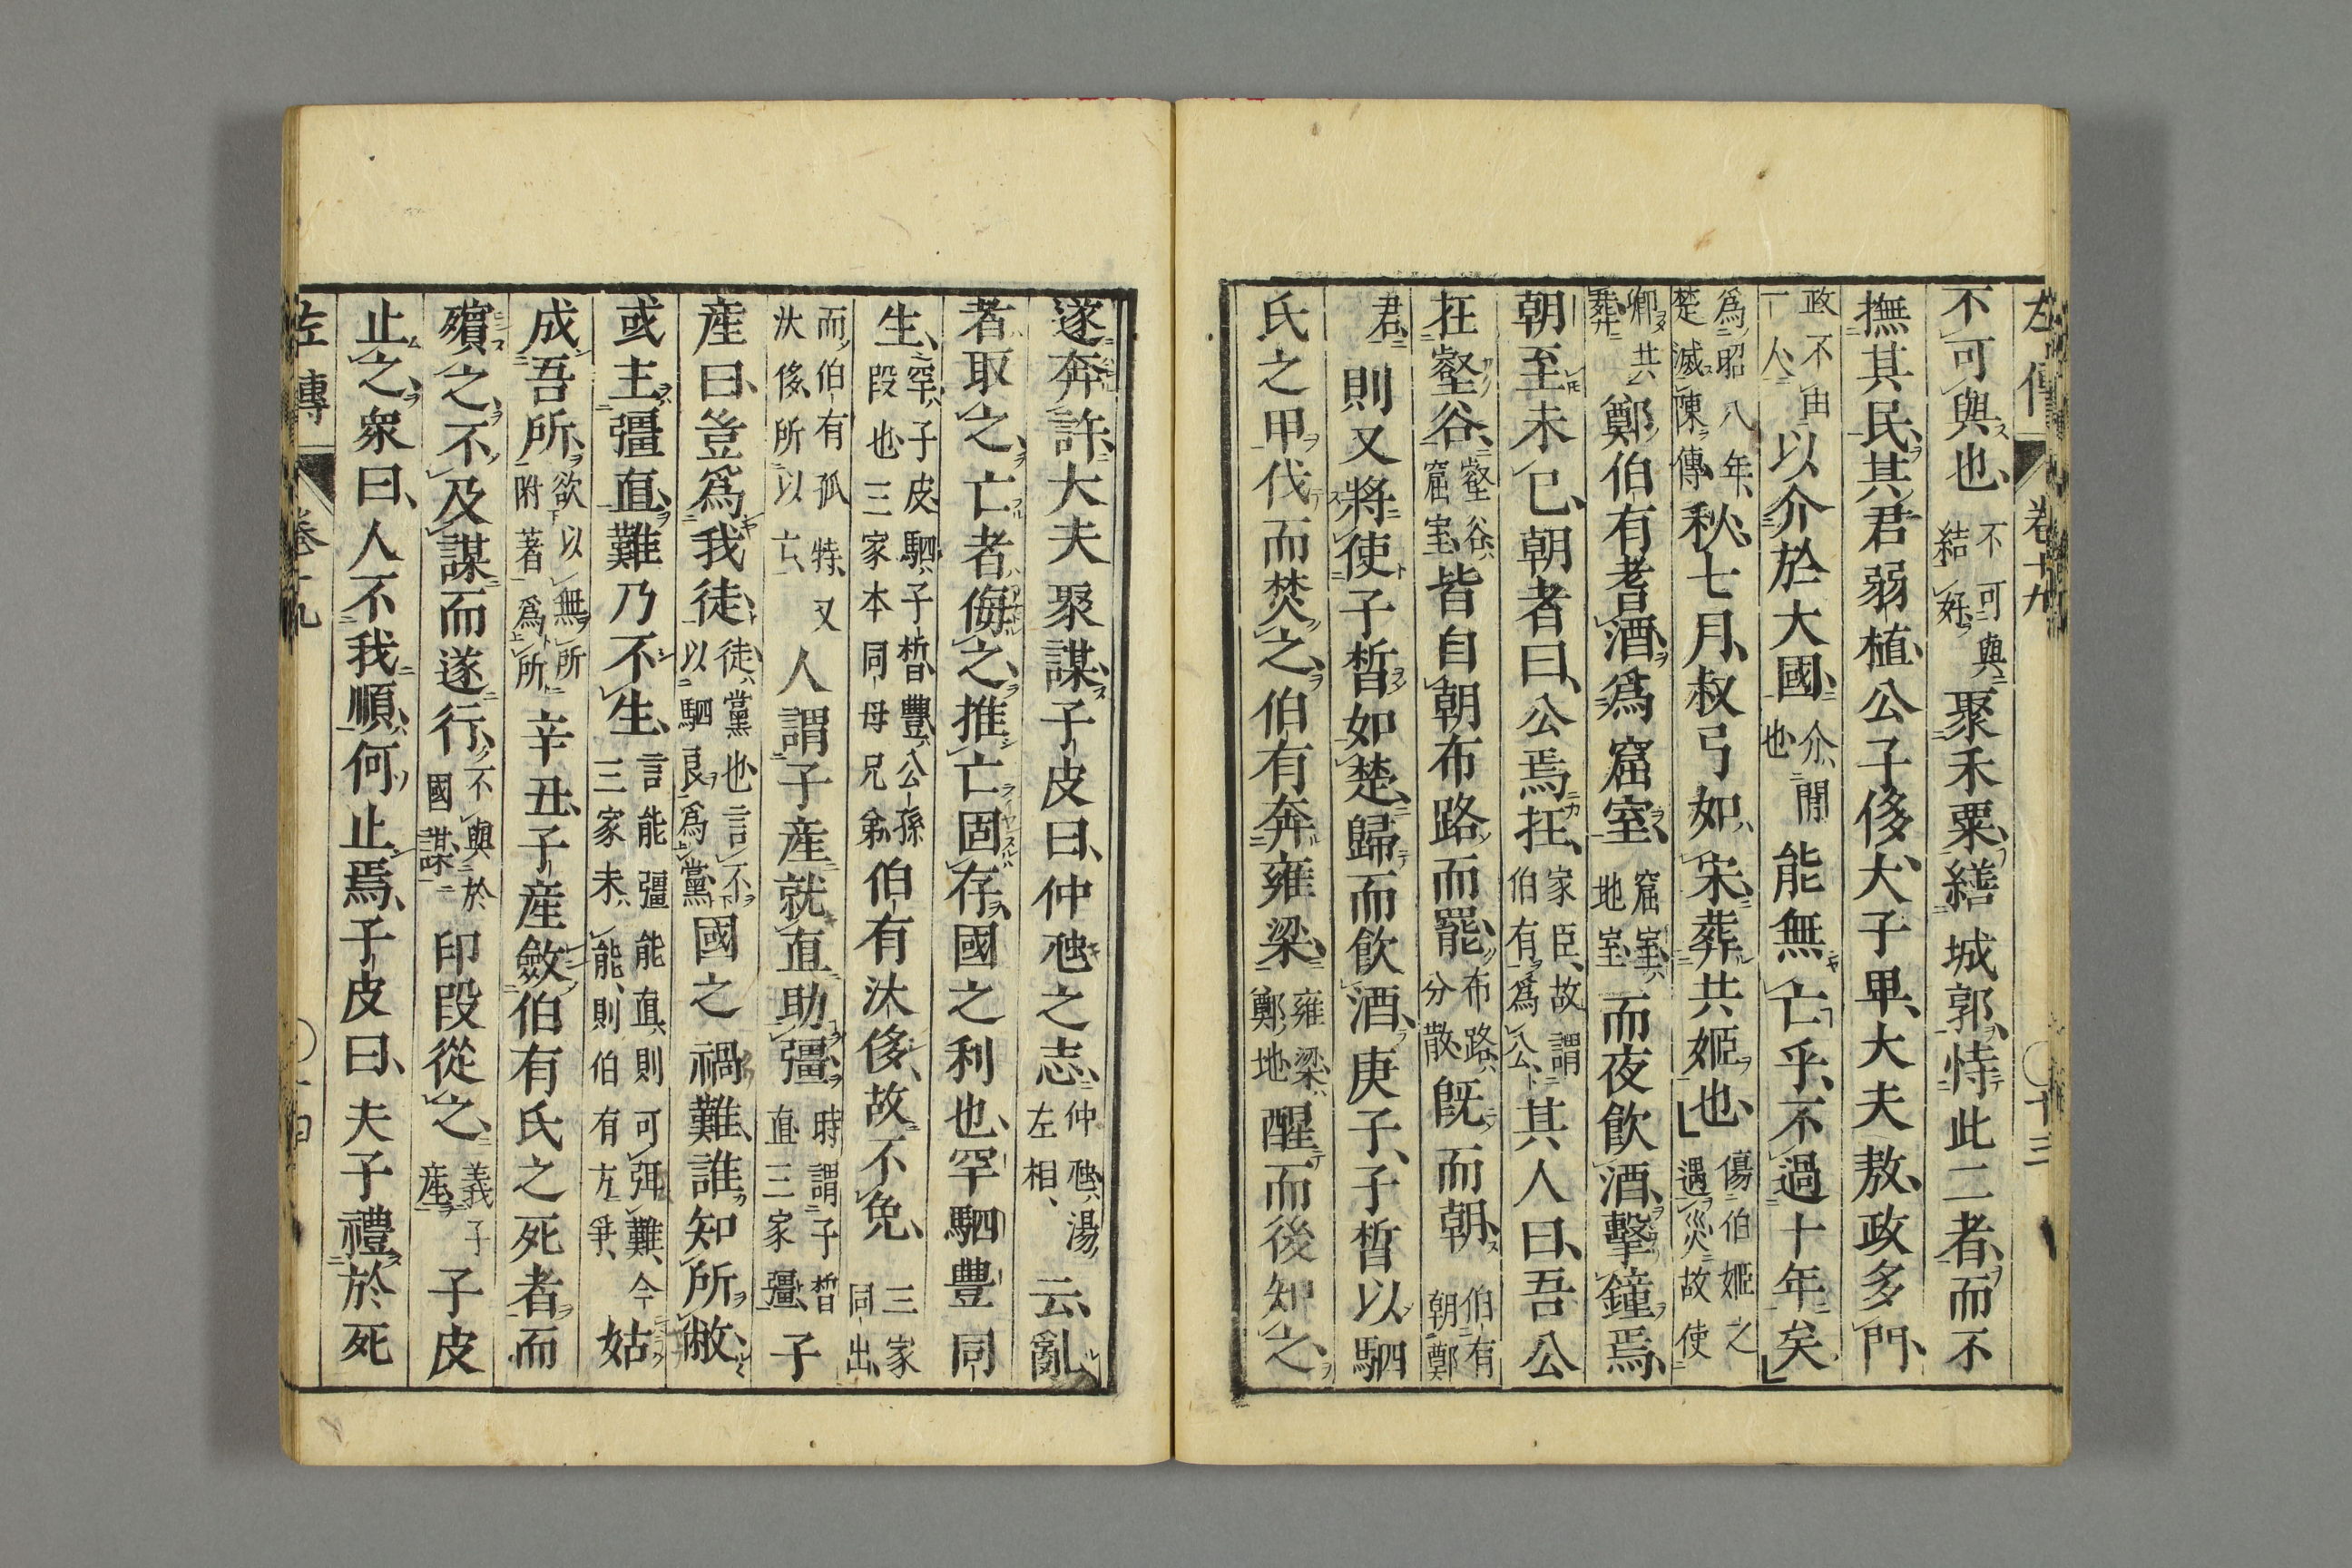 左傳 卷十九 十三
不可與也、不可與結好、聚禾粟、繕城郭、恃此二者、而不
撫其民、其君弱植、公子侈、大子卑、大夫敖、政多門、
政不由一人、以介於大國、介、閒也、能無亡乎、不過十年矣、
爲昭八年、楚滅陳傳、秋、七月、叔弓如宋、葬共姬也、傷伯姬之遇災故使
卿共葬、鄭伯有耆酒、爲窟室、窟室、地室、而夜飲酒、擊鐘焉、
朝至未已、朝者曰、公焉在、家臣、故謂伯有爲公、其人曰、吾公
在壑谷、壑谷、窟室、皆自朝布路而罷、布路、分散、既而朝、伯有朝鄭
君、則又將使子晳如楚、歸而飲酒、庚子、子晳以駟
氏之甲伐而焚之、伯有奔雍梁、雍梁、鄭地、醒而後知之、
遂奔許、大夫聚謀、子皮曰、仲虺之志、仲虺、湯左相、云、亂
者取之、亡者侮之、推亡固存、國之利也、罕駟豐同
生、罕、子皮、駟、子晳、豐、公孫段也、三家本同母兄弟、伯有汰侈、故不免、三家同出、
而伯有孤特、又汰侈、所以亡、人謂子產就直助彊、時謂子晳直三家彊、子
產曰、豈爲我徒、徒、黨也、言不以駟良爲黨、國之禍難、誰知所敝、
或主彊直、難乃不生、言能彊能直、則可弭難、今三家未能、則伯有方爭、姑
成吾所、欲以無所附著爲所、辛丑、子產斂伯有氏之死者、而
殯之、不及謀而遂行、不與於國謀、印段從之、義子產、子皮
止之、衆曰、人不我順、何止焉、子皮曰、夫子禮於死
左傳 卷十九 十四